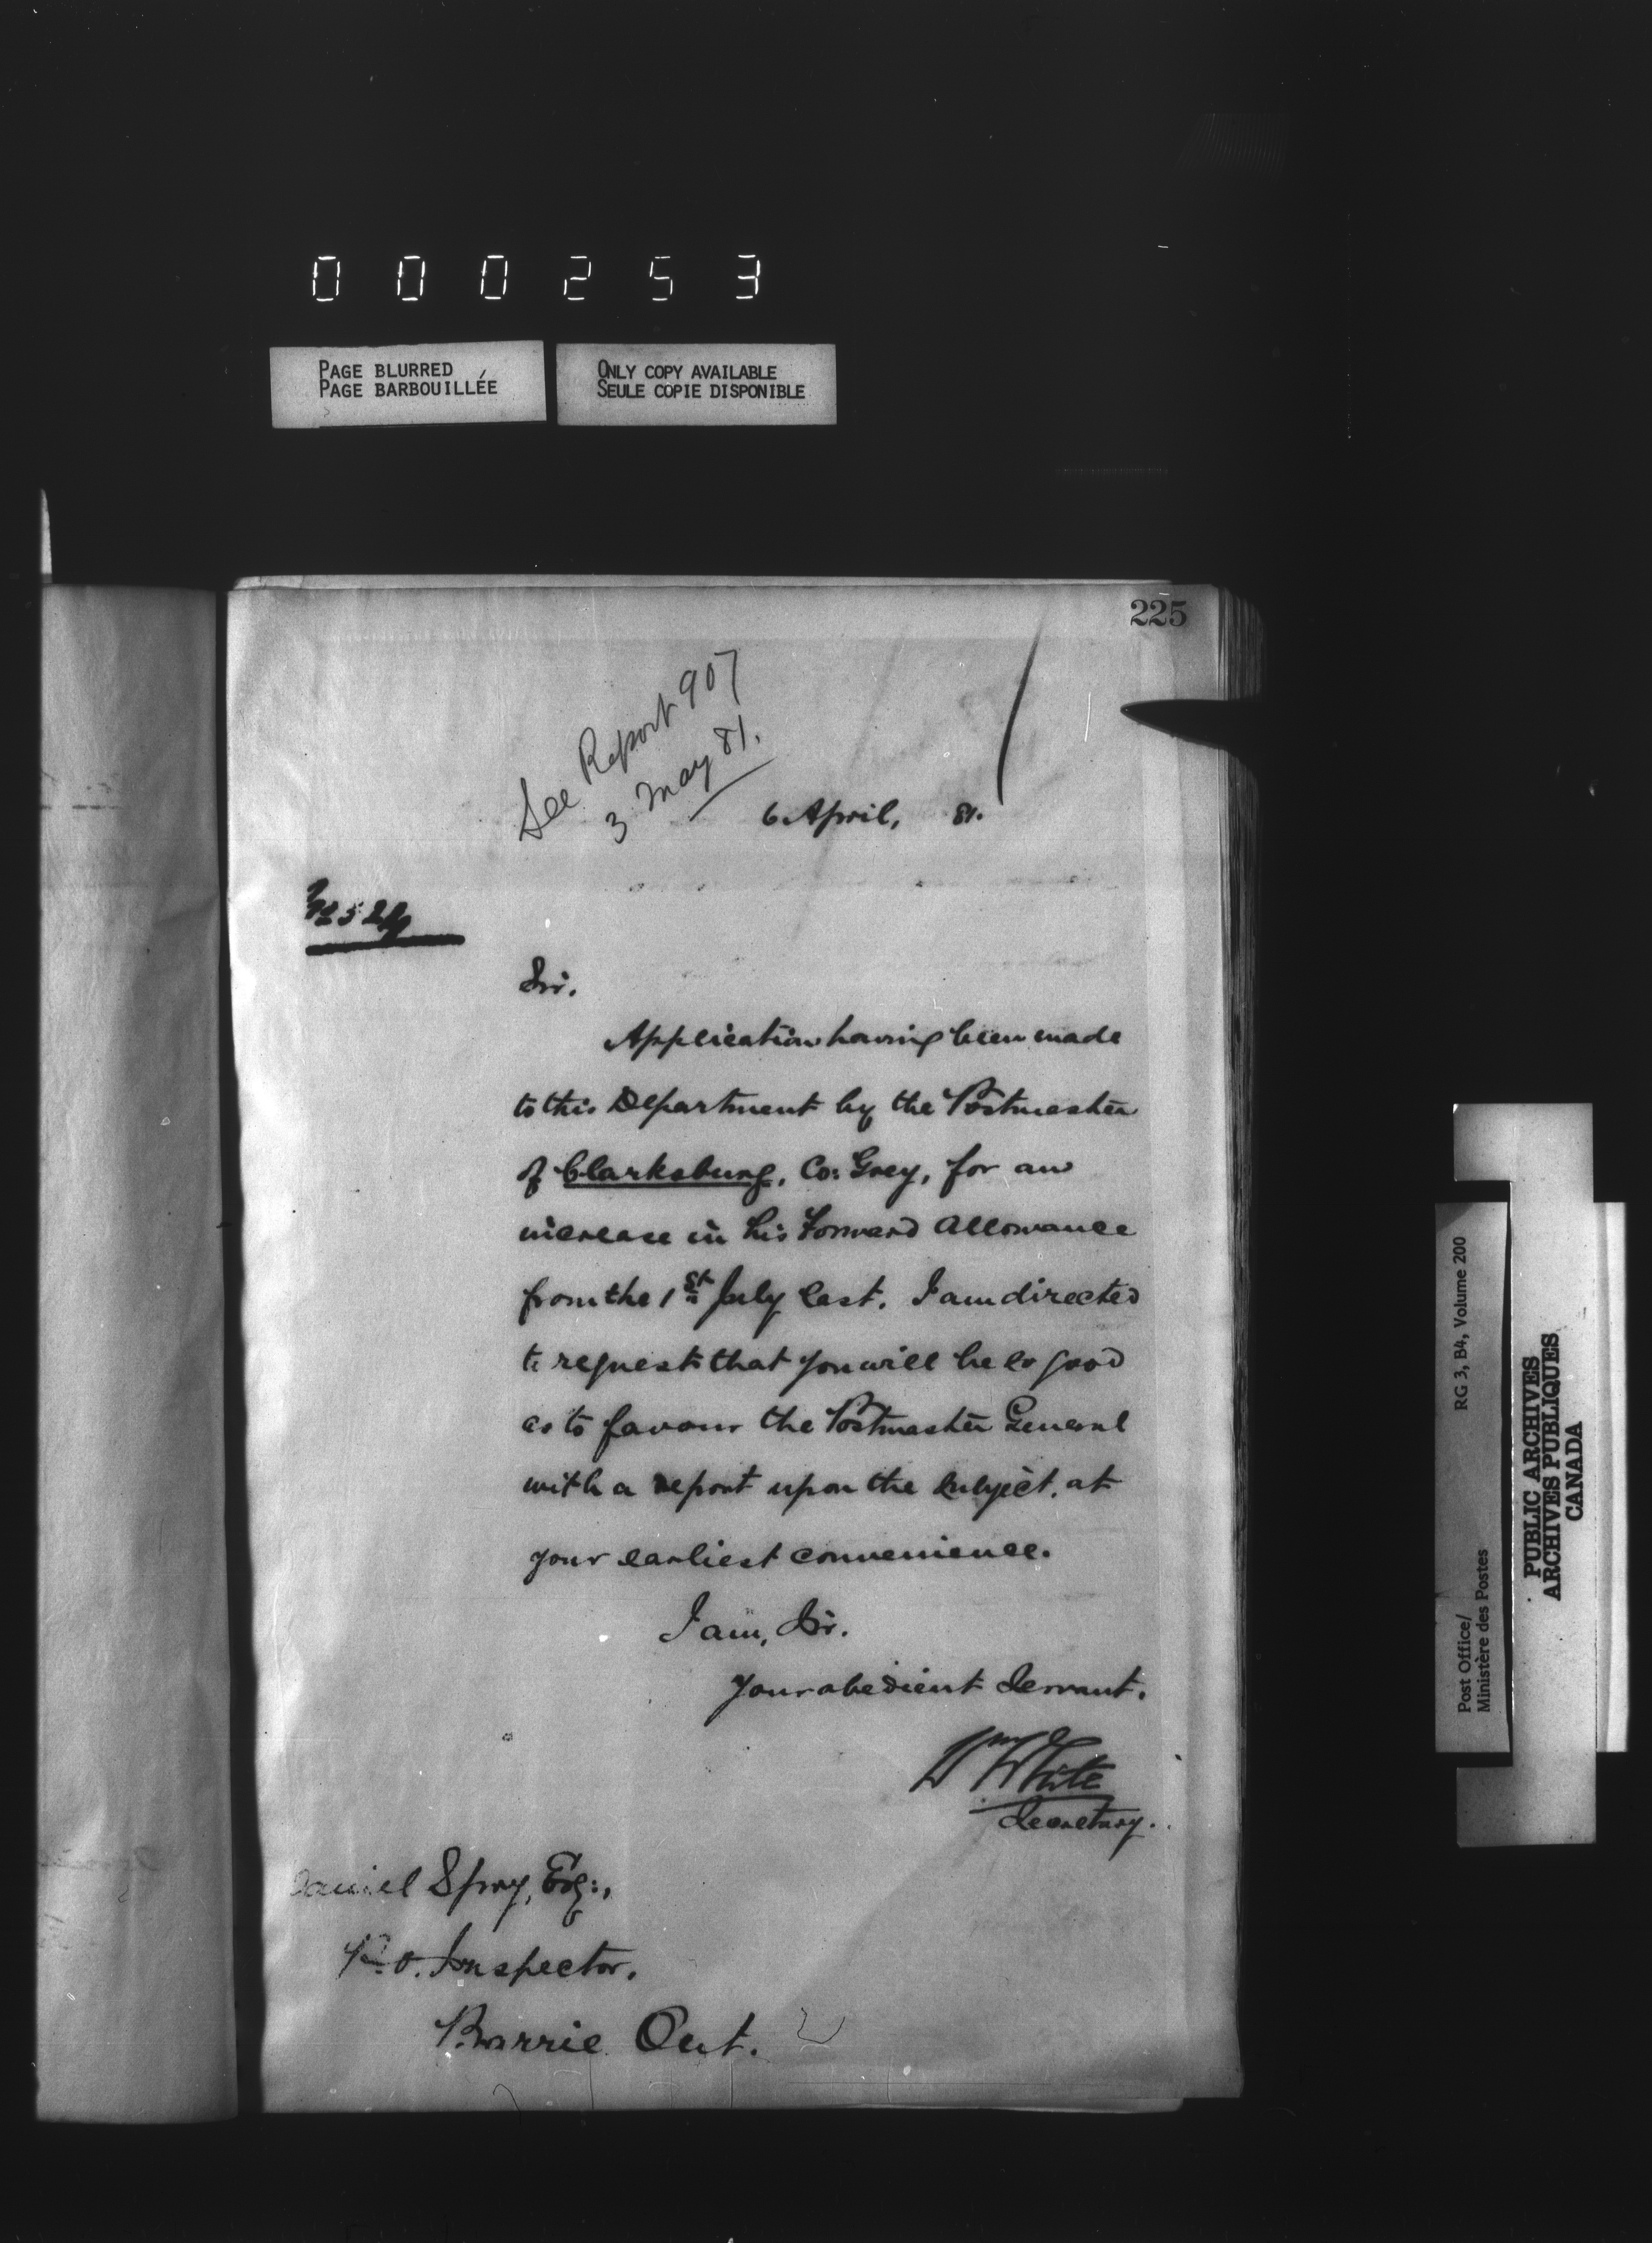 0 0 0 2 5 3
PAGE BLURRED
PAGE BARBOUILLÉE
ONLY COPY AVAILABLE
SEULE COPIE DISPONIBLE
225
See Report 907
3 May 81.
6 April, 81.
No 524
Sir.
Application having been made
to this Department by the Postmaster
of Clarksburg, Co: Grey, for an
increase in his Forward Allowance
from the 1st July last. I am directed
to request that you will be so good
as to favour the Postmaster General
with a report upon the subject, at
your earliest convenience.
I am, Sir.
Your obedient Servant.
Wm White
Secretary.
Daniel Spry, Esq:,
P.O. Inspector,
Barrie Ont.
RG 3, B4, Volume 200
Post Office/
Ministère des Postes
PUBLIC ARCHIVES
ARCHIVES PUBLIQUES
CANADA